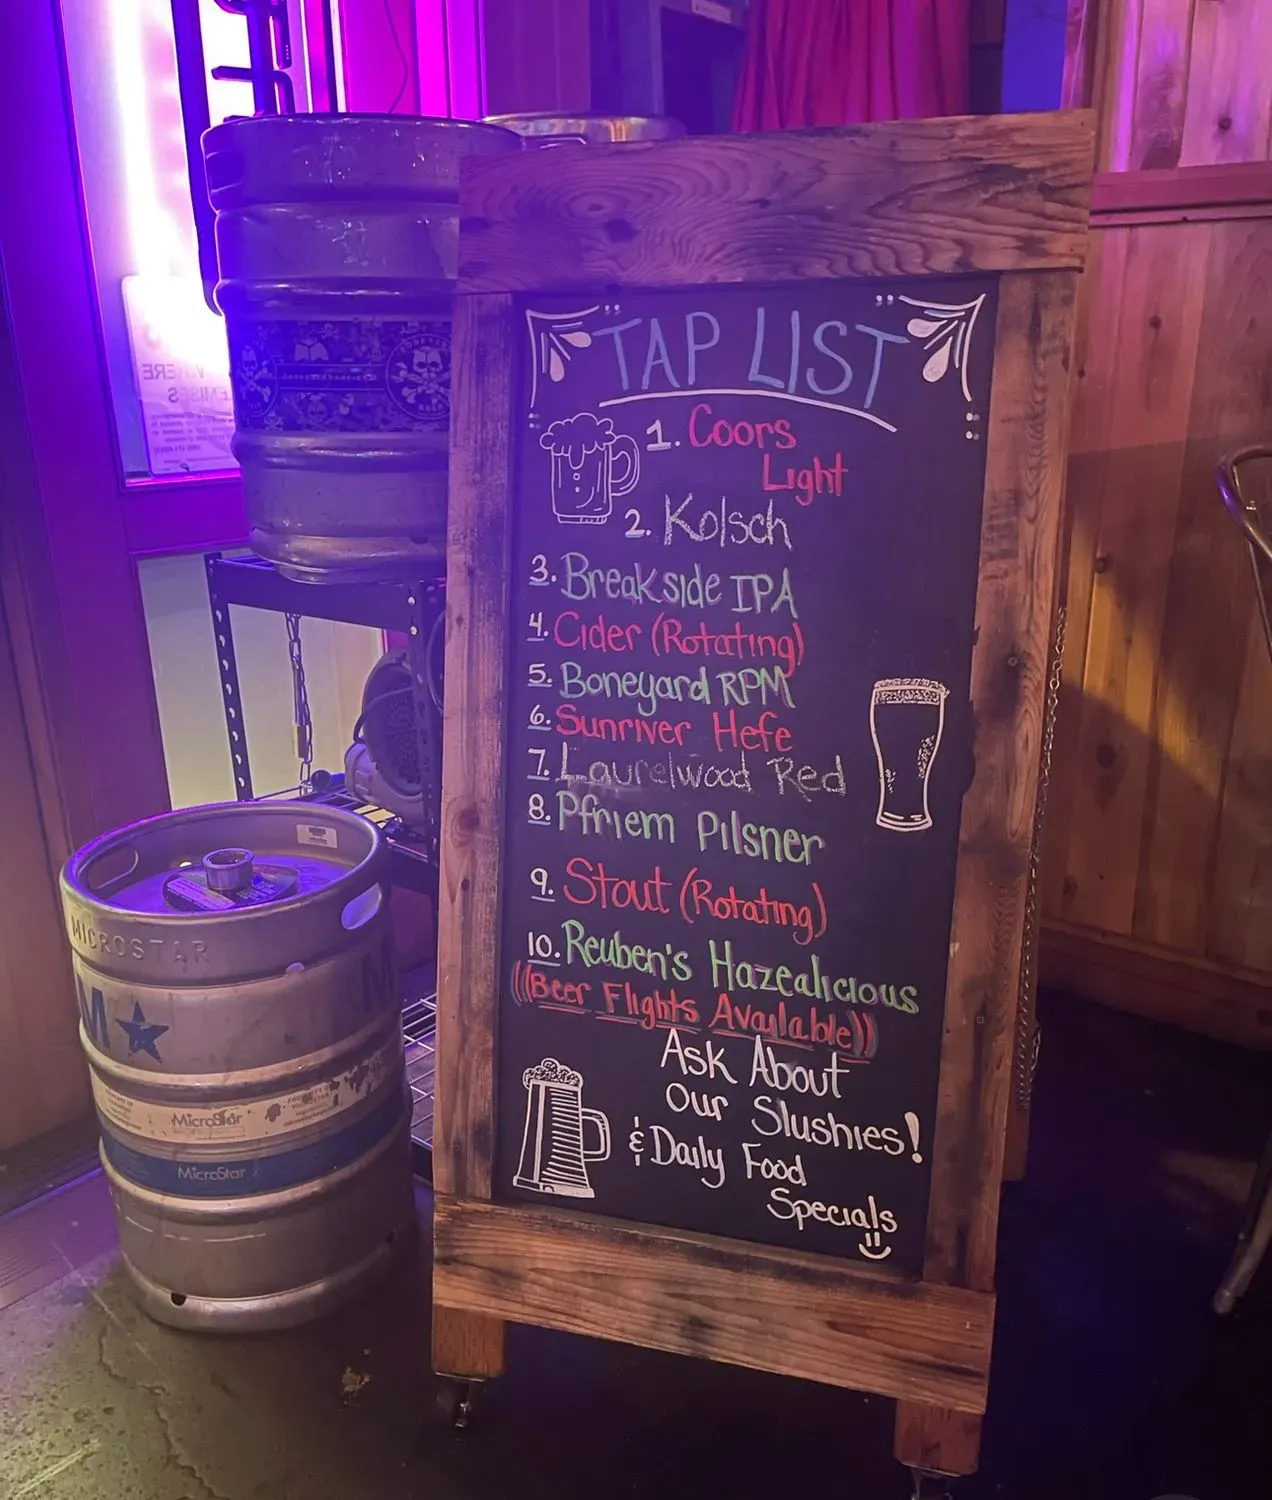 TAP LIST
1. Coors
Light
2. Kolsch
3. Breakside IPA
4. Cider (Rotating)
5. Boneyard RPM
6. Sunriver Hefe
7. Laurelwood Red
8. Pfriem Pilsner
9. Stout (Rotating)
10. Reuben's Hazealicious
((Beer Flights Available))
Ask About
Our Slushies!
& Daily Food
Specials
MICROSTAR
M
M
MicroStar
MicroStar